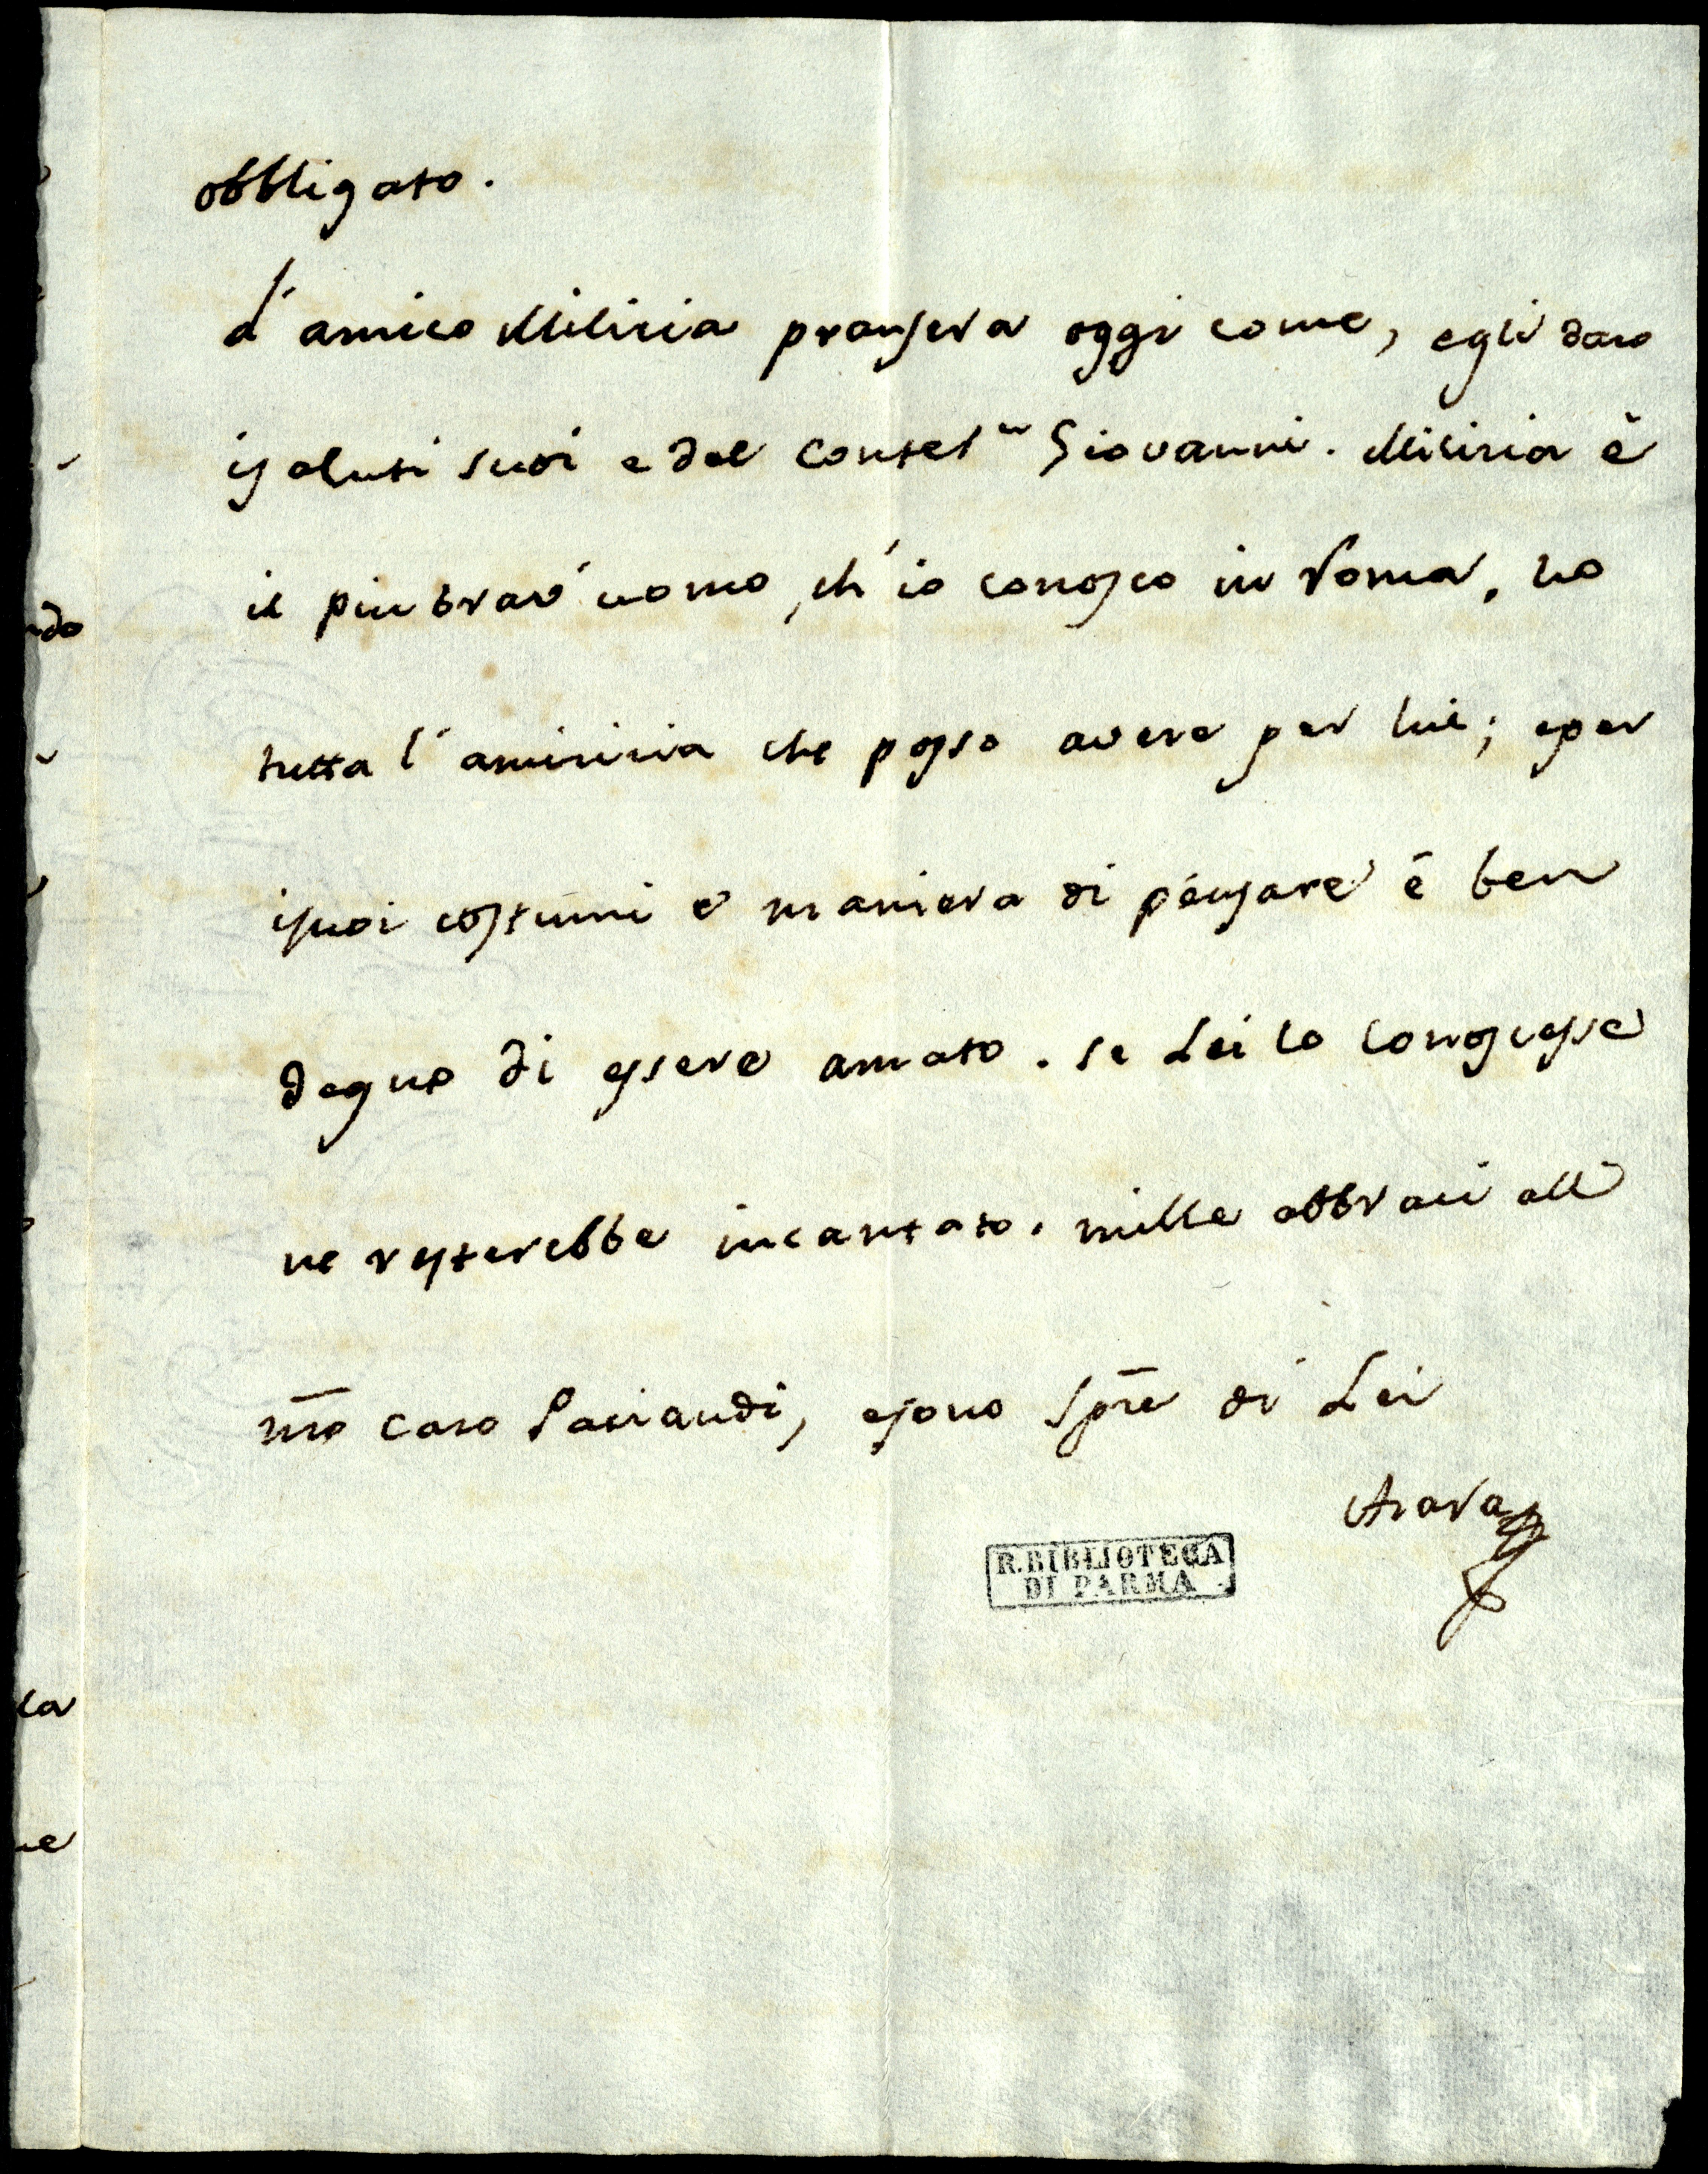 obbligato.
L'amico Milizia pranserà oggi come, egli darò
i saluti suoi e del Consel.re Giovanni. Milizia è
il piu bravo uomo, ch'io conosco in Roma, ho
tutta l'amicizia che posso avere per lui; e per
i suoi costumi e maniera di pensare è ben
degno di essere amato. se Lei lo conoscesse
ne resterebbe incantato. mille abbracci all
nro caro Paciaudi, e sono Spre di Lei
Azara
R. BIBLIOTECA
DI PARMA
do
la
ne